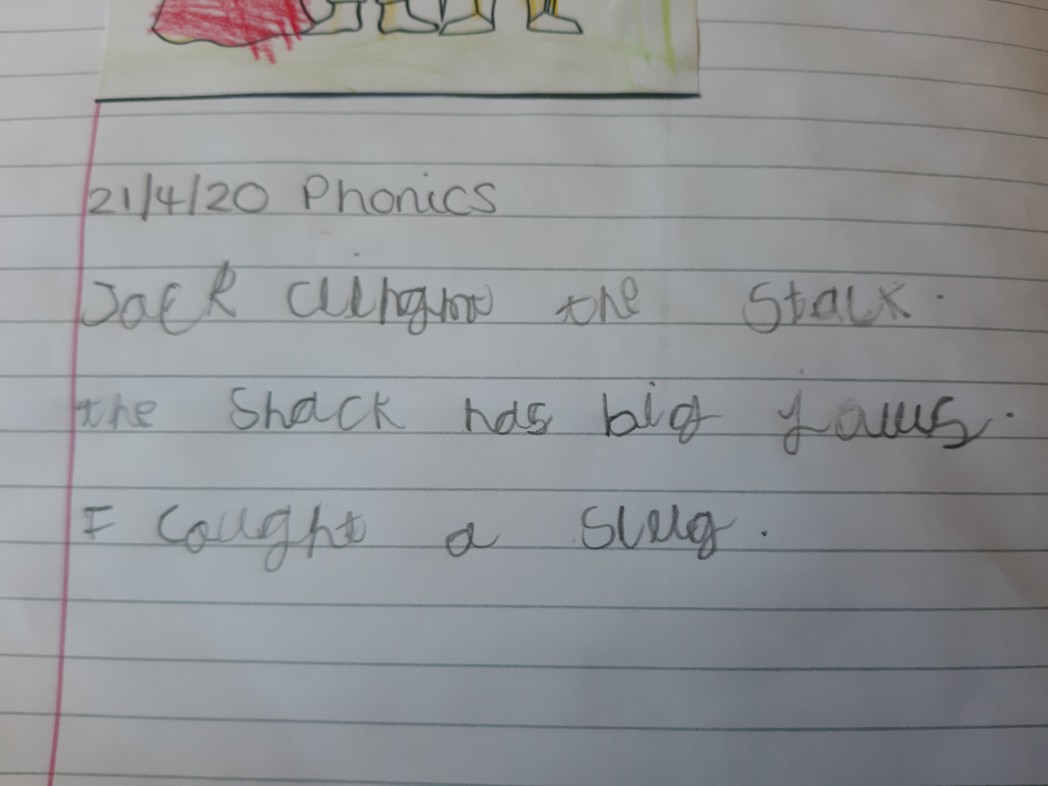 21/4/20 Phonics
Jack the stalk.
the Shack has big jaws.
I cought a slug.